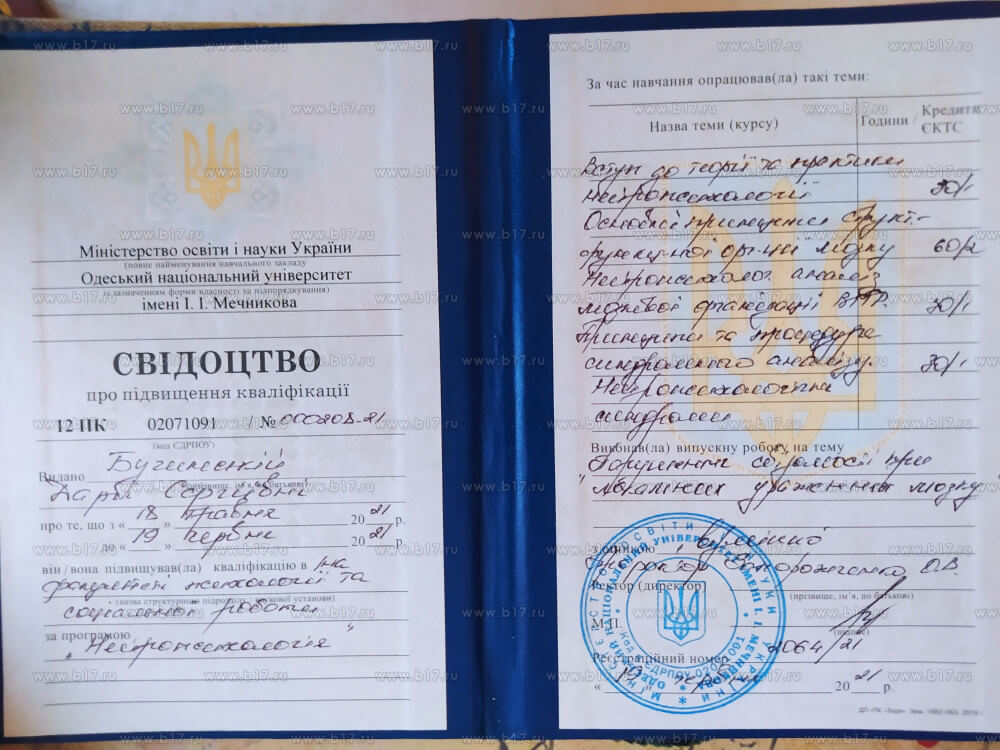 Міністерство освіти і науки України
(повне найменування навчального закладу
Одеський національний університет
із зазначенням форми власності та підпорядкування)
імені І. І. Мечникова
СВІДОЦТВО
про підвищення кваліфікації
12 ПК 02071091 № 000208-21
(код ЄДРПОУ)
Видано
(прізвище, ім'я, по батькові)
про те, що з « 18 » травня 2021 р.
до « 19 » червня 2021 р.
він/вона підвищував(ла) кваліфікацію в
факультеті психології та
(назва структурного підрозділу, наукової установи)
соціальної роботи
за програмою
"Нейропсихологія"
За час навчання опрацював(ла) такі теми:
Назва теми (курсу) Години / Кредити ЄКТС
Вступ до теорії та практики
Нейропсихології 30/1
Основні принципи
мозку 60/2
аналіз
мозкової організації ВПФ. 30/1
Принципи та процедура
синдромного аналізу. 30/1
Нейропсихологічні
синдроми
Виконав(ла) випускну роботу на тему
"Порушення свідомості при
локальних ураженнях мозку"
з оцінкою відмінно
Проректор Запорожченко О.В.
Ректор (директор)
(прізвище, ім'я, по батькові)
М.П.
(підпис)
Реєстраційний номер 2064/21
« 19 » червня 2021 р.
МІНІСТЕРСТВО ОСВІТИ І НАУКИ УКРАЇНИ
ОДЕСЬКИЙ НАЦІОНАЛЬНИЙ УНІВЕРСИТЕТ ІМЕНІ І. І. МЕЧНИКОВА
Код ЄДРПОУ 02071091
www.b17.ru